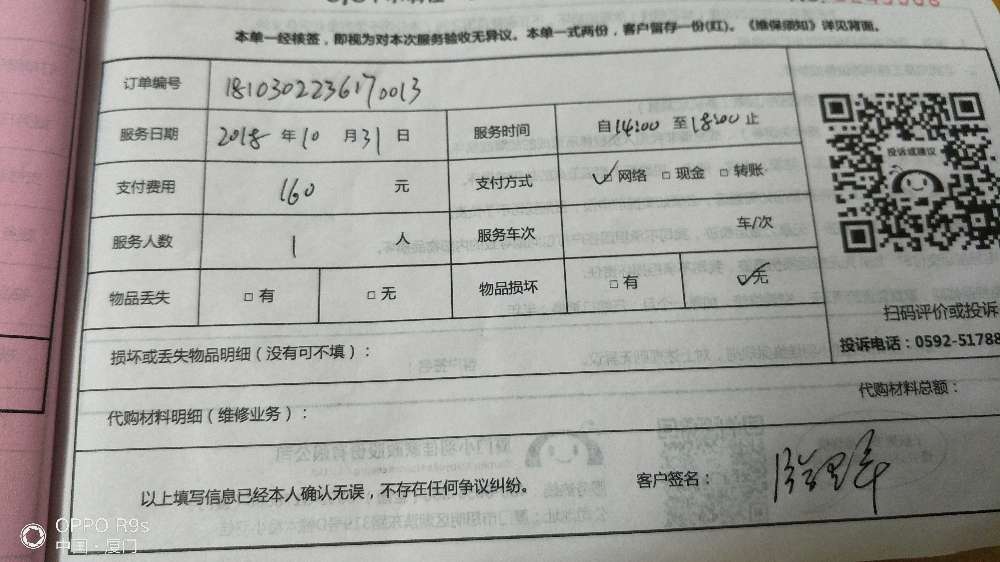 本单一经核签，即视为对本次服务验收无异议。本单一式两份，客户留存一份(红)。《维保须知》详见背面。
订单编号 1810302236170013
服务日期 2018 年 10 月 31 日 服务时间 自14:00 至18:00 止
支付费用 160 元 支付方式 ✓□ 网络 □ 现金 □ 转账
服务人数 1 人 服务车次 车/次
物品丢失 □ 有 □ 无 物品损坏 □ 有 ✓□ 无
投诉或建议
扫码评价或投诉
投诉电话：0592-51788
损坏或丢失物品明细（没有可不填）：
代购材料明细（维修业务）： 代购材料总额：
以上填写信息已经本人确认无误，不存在任何争议纠纷。 客户签名：
OPPO R9s
中国·厦门